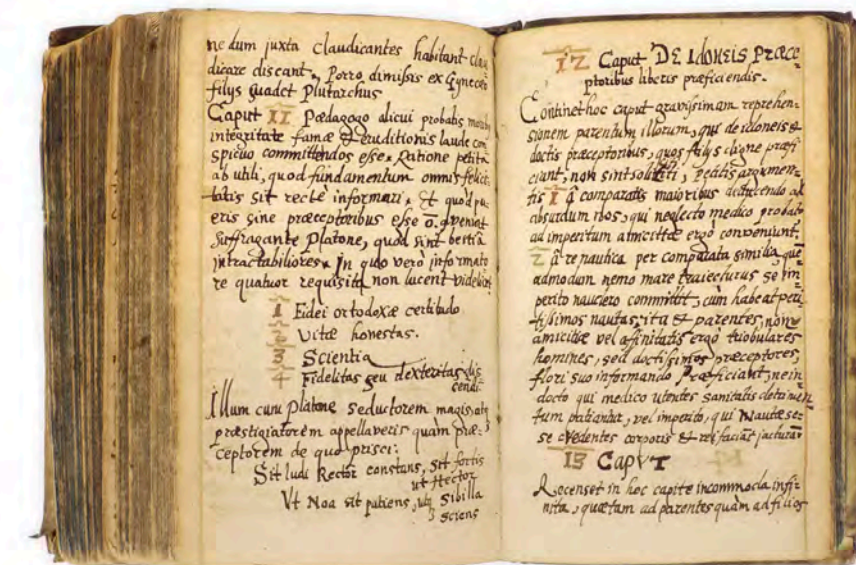 ne dum juxta Claudicantes habitant clau
dicare discant. Porro dimissis ex Gynecæo
filijs suadet Plutarchus
Caput 11 Pædagogo alicui probatis moribus
integritate famæ & eruditionis laude con
spicuo committendos esse. Ratione petita
ab utili, quod fundamentum omnis felici
tatis sit rectè informari. Et quod pu
eris sine præceptoribus esse ō. qveniat
Suffragante Platone, quod sint bestiâ
intractabiliores. In quo verò informato
re quatuor requisita non lucent videlicet
1 Fidei ortodoxæ certitudo
2 Vitæ honestas.
3 Scientia
4 Fidelitas seu dexteritas dis
cendi.
Illum cum Platone Seductorem magis, atq
præstigiatorem appellaveris quam præ=
ceptorem de quo prisci:
Sit ludi Rector constans, Sit fortis
ut Hector
Vt Noa sit patiens, utq Sibilla
sciens
12 Caput DE IdONEIS Præce=
ptoribus liberis præficiendis.
Continet hoc caput gravissimam reprehen=
sionem parentum illorum, qui de idoneis &
doctis præceptoribus, quos filijs digne præfi
ciunt, non sint soliciti, Petitis argumen=
tis 1 â comparatis maioribus deducendo ad
absurdum eos, qui neglecto medico probato
ad imperitum amicitiæ ergò conveniunt,
2 â re nautica per comparata similia, que
admodum nemo mare traiecturus se im
perito nauclero committit, cùm habeat peri
tissimos nautas, ita & parentes, non
amicitiæ vel affinitatis ergò triobulares
homines, sed doctissimos præceptores,
flori suo informando Præficiant, ne in
docto qui medico utentes Sanitatis detrimen
tum patiantur, vel imperito, qui Nautæ se=
se credentes corporis & rei faciāt jacturam
13 CapVT
Recenset in hoc capite incommoda infi=
nita, quæ tam ad parentes quàm ad filios